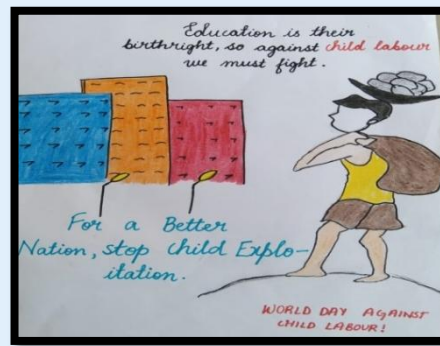 Education is their
birthright, so against child labour
we must fight.
For a Better
Nation, stop child Explo-
itation.
WORLD DAY AGAINST
CHILD LABOUR!